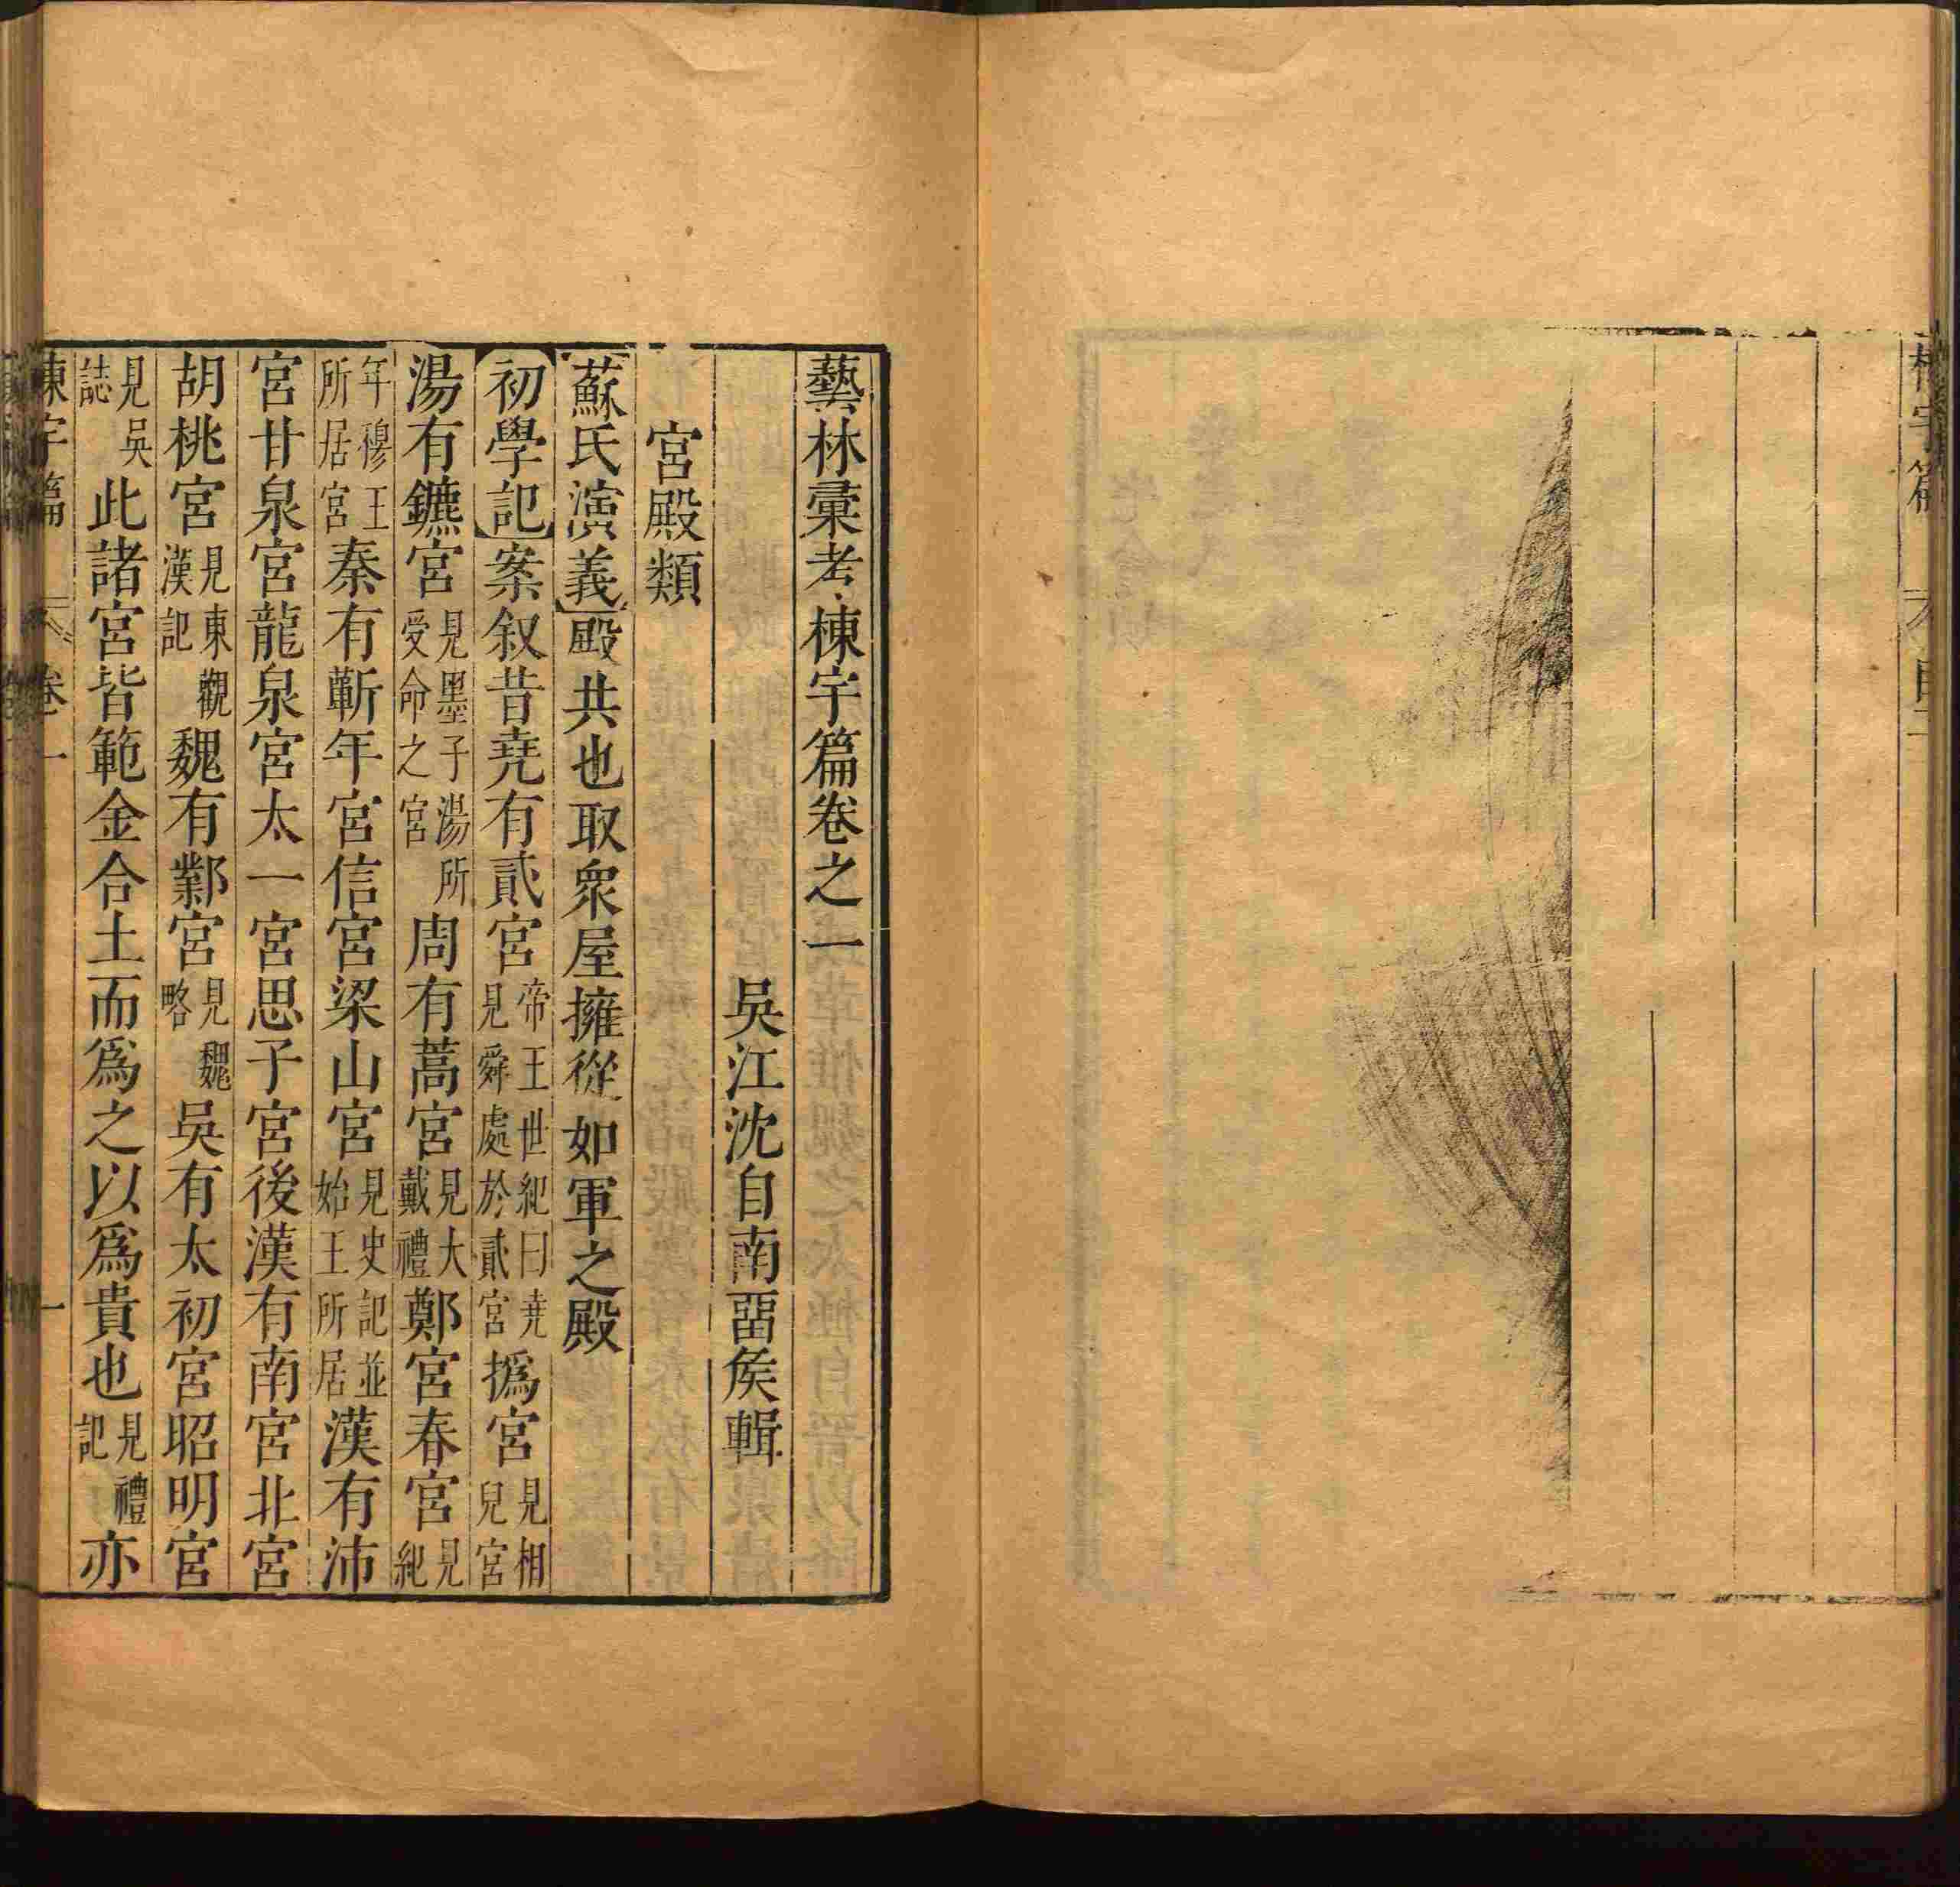 棟宇篇
藝林彙考棟宇篇卷之一
吳江沈自南畱矦輯
宮殿類
蘇氏演義殿共也取衆屋擁從如軍之殿
初學記案叙昔堯有貳宮帝王世紀曰堯見舜處於貳宮撝宮見相兒宮
湯有鑣宮見墨子湯所受命之宮周有蒿宮見大戴禮鄭宮春宮見紀
年穆王所居宮秦有蘄年宮信宮梁山宮見史記並始王所居漢有沛
宮甘泉宮龍泉宮太一宮思子宮後漢有南宮北宮
胡桃宮見東觀漢記魏有鄴宮見魏略吳有太初宮昭明宮
見吳誌此諸宮皆範金合土而爲之以爲貴也見禮記亦
棟宇篇 卷一 一